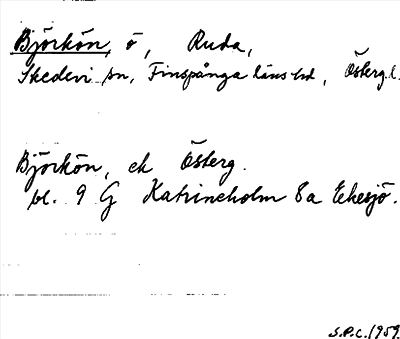 Björkön, ö, Ruda,
Skedevi sn, Finspånga läns hd, Österg.l.
Björkön, ek Österg.
bl. 9 G Katrineholm 8a Ekesjö.
S.P.C. 1959.